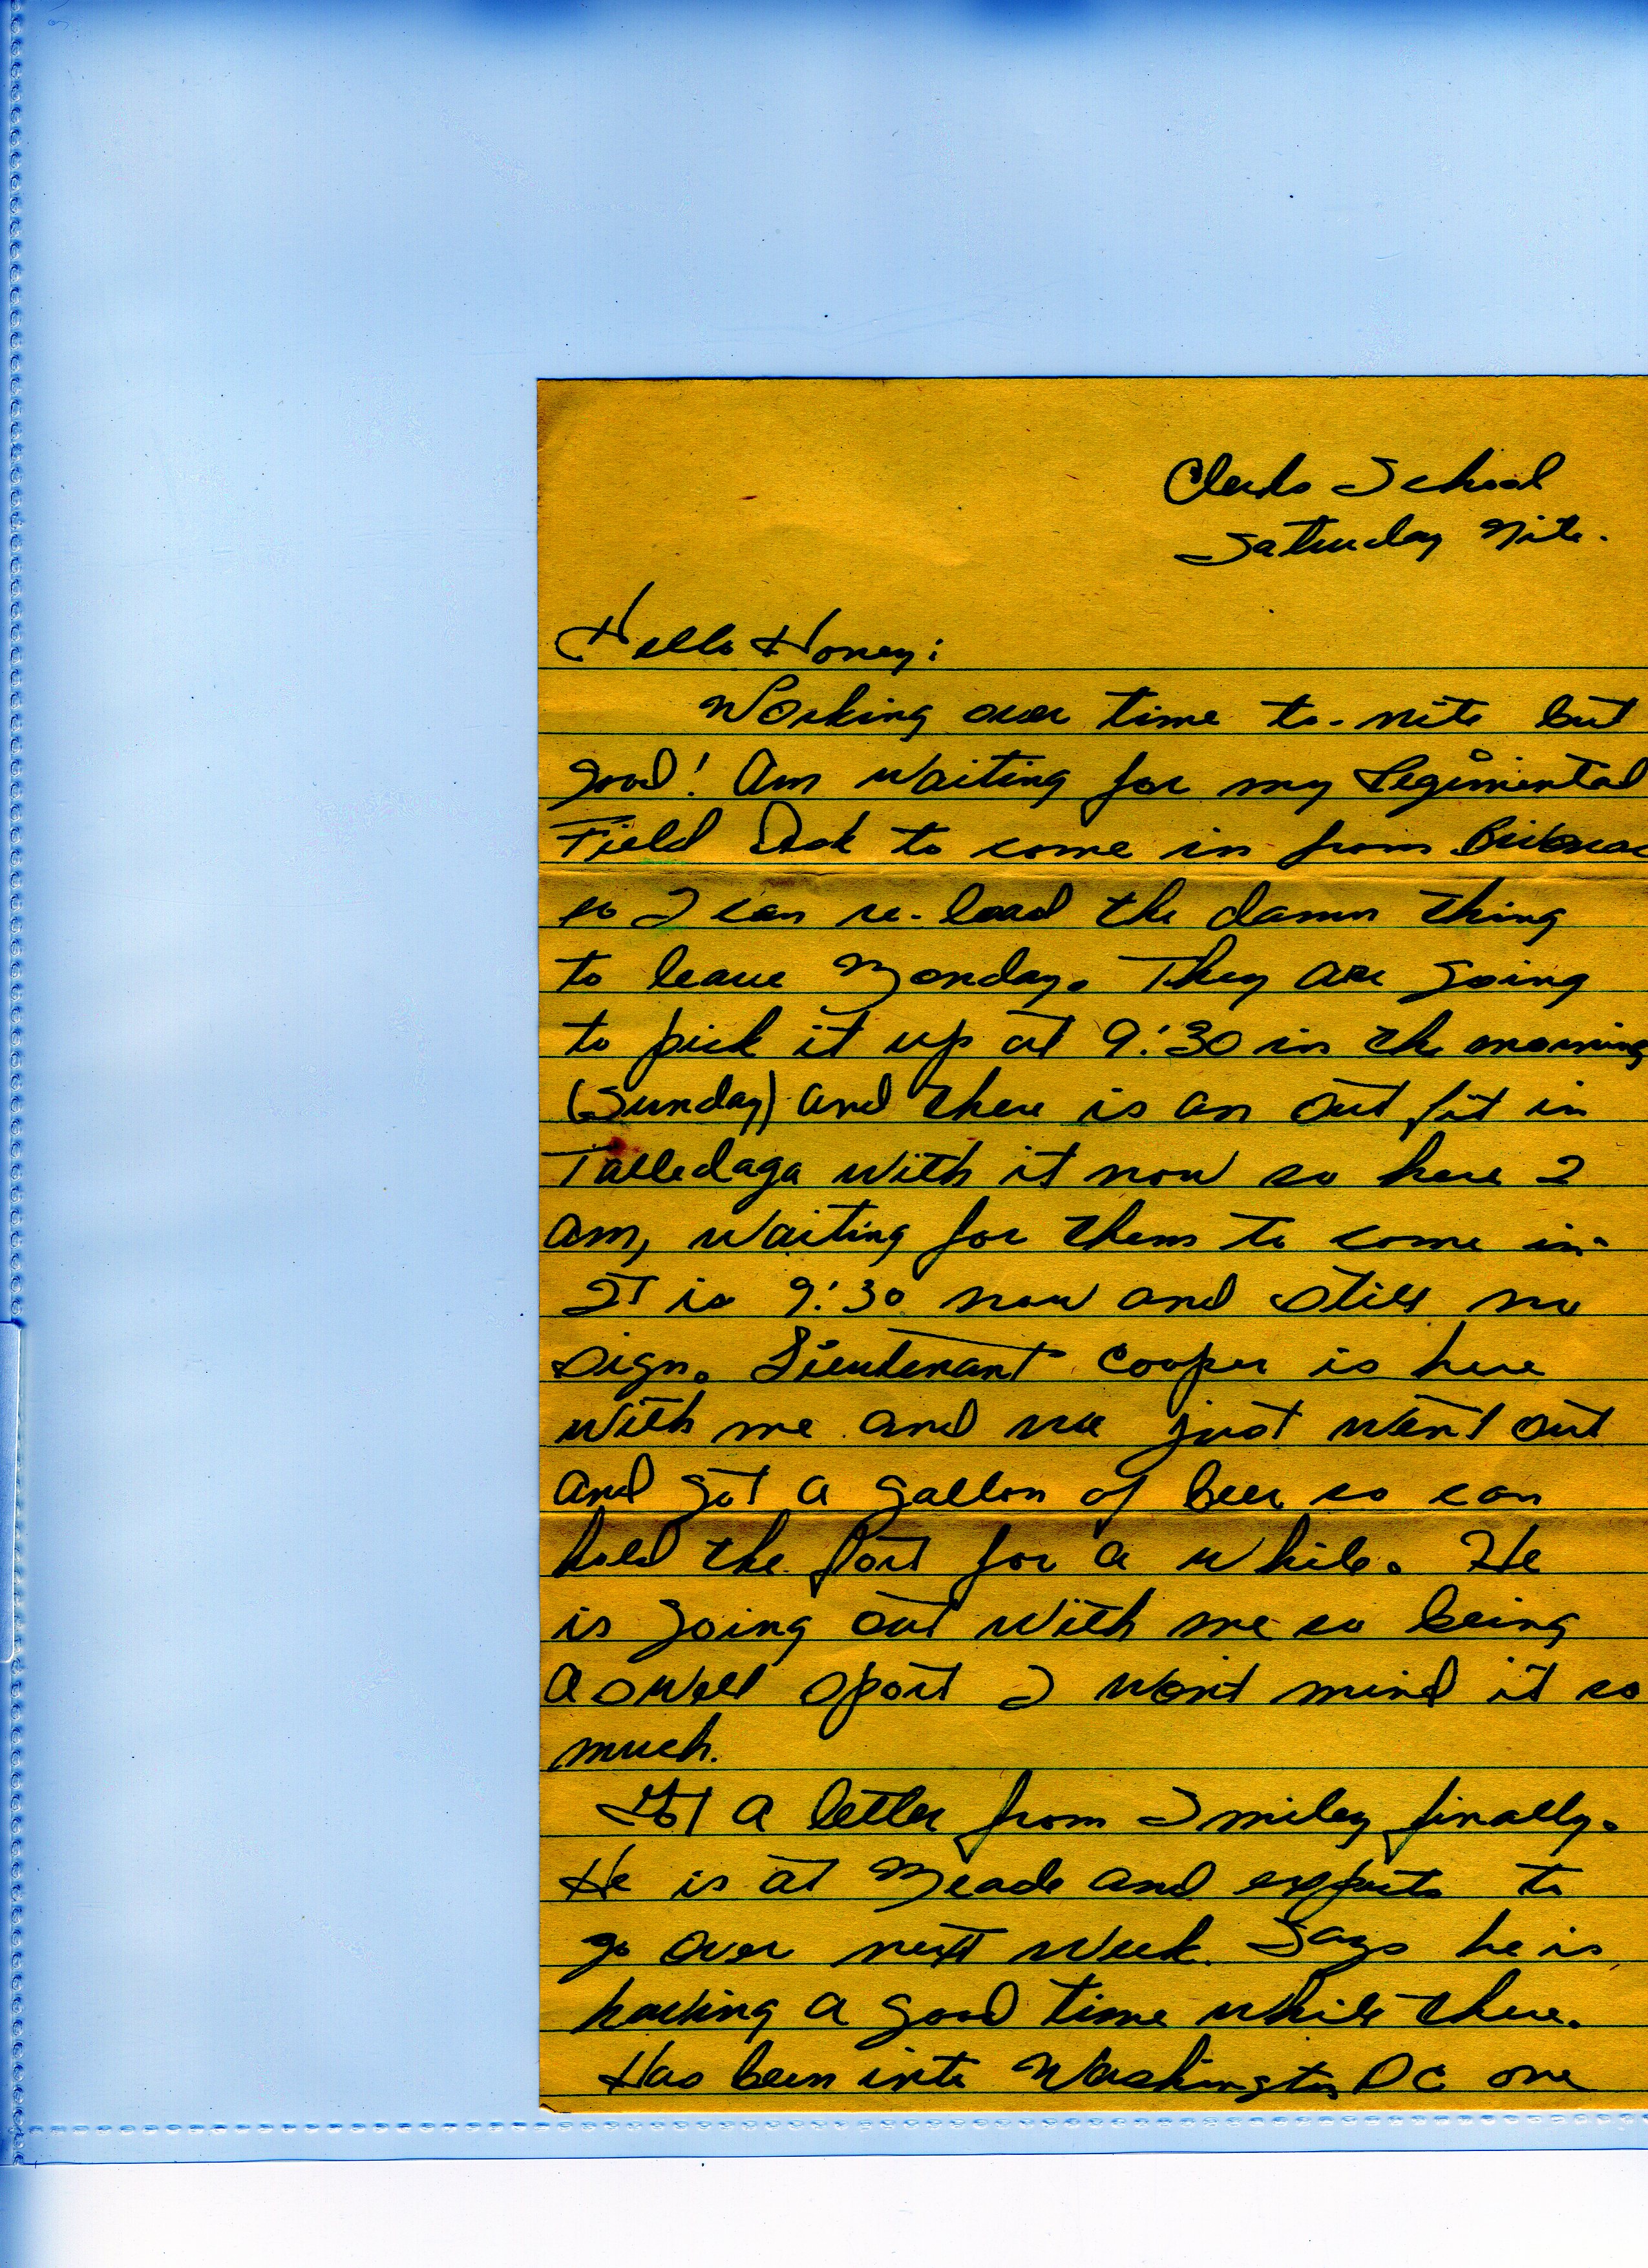 Clerks School
Saturday Nite.
Hello Honey:
Working over time to-nite but
good! Am waiting for my Regimental
Field Desk to come in from
so I can re-load the damn thing
to leave Monday. They are going
to pick it up at 9:30 in the morning
(Sunday) and there is an out fit in
Talledaga with it now so here I
am, waiting for them to come in.
It is 9:30 now and still no
sign. Lieutenant Cooper is here
with me and we just went out
and got a gallon of beer so can
hold the fort for a while. He
is going out with me so being
a swell sport I won't mind it so
much.
Got a letter from Smiley finally.
He is at Meade and expects to
go over next week. Says he is
having a good time while there.
Has been into Washington DC one